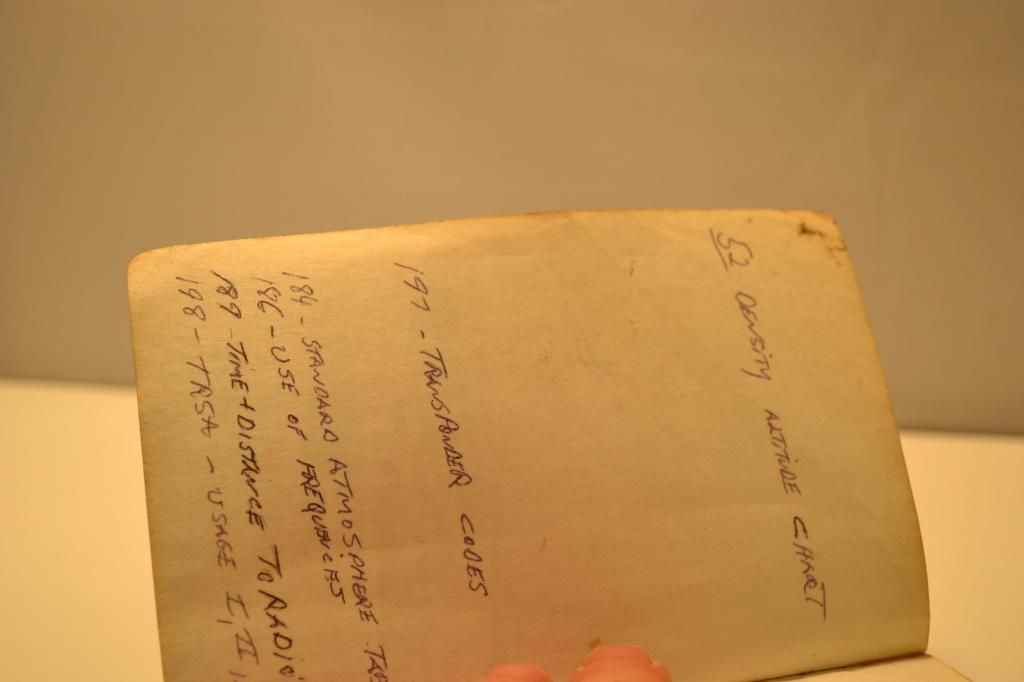 52 DENSITY ALTITUDE CHART
197 - TRANSPONDER CODES
184 - STANDARD ATMOSPHERE TAB
186 - USE OF FREQUENCIES
189 - TIME + DISTANCE TO RADIO
198 - TRSA - USAGE I, II,